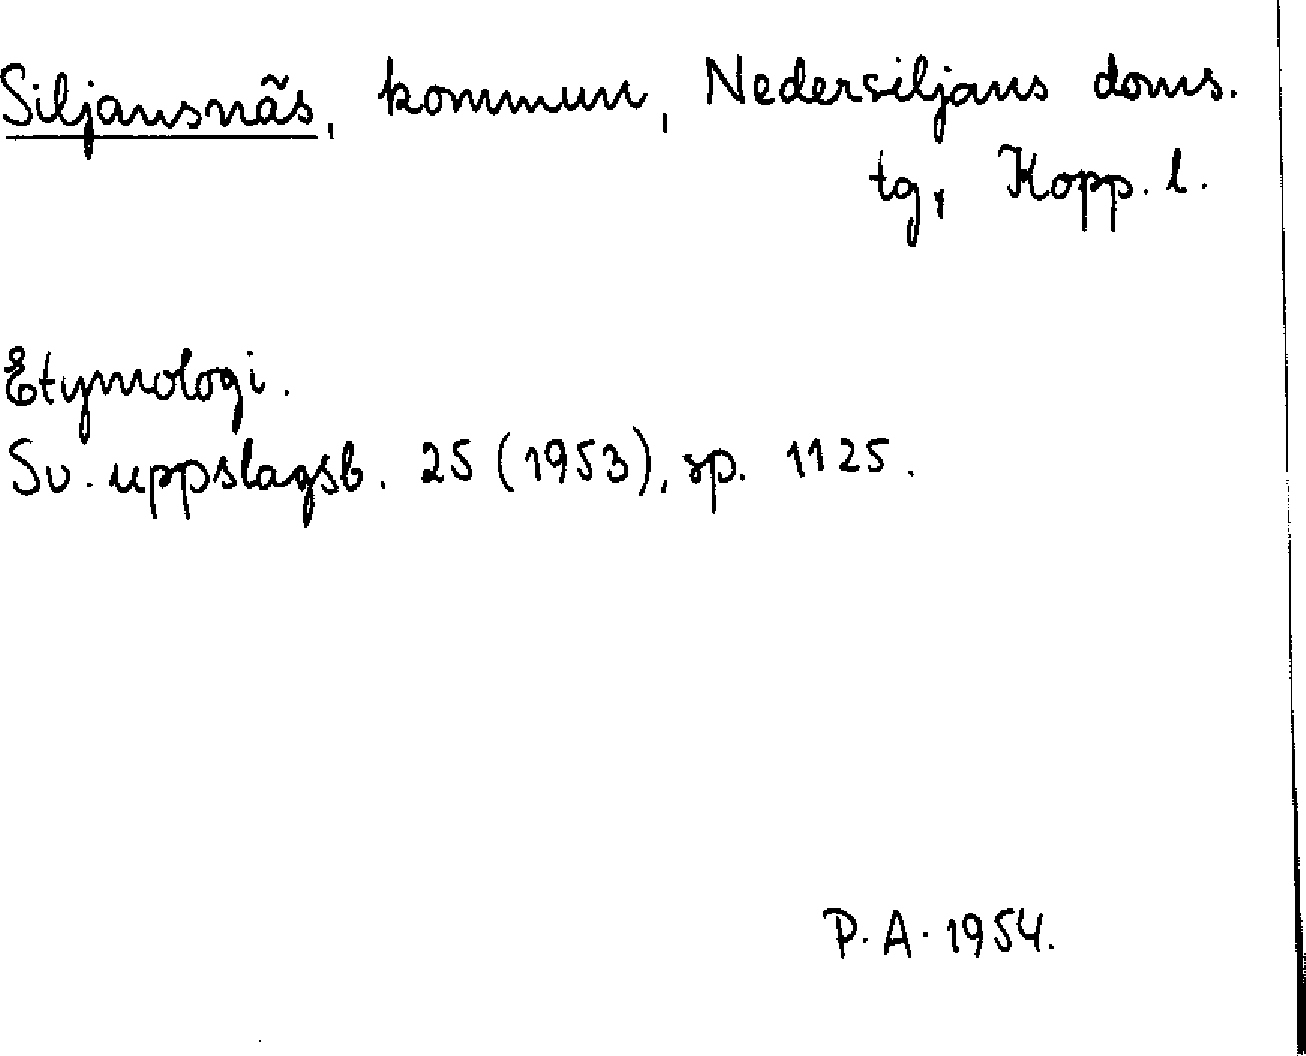 Siljansnäs, kommun, Nedersiljans doms.
tg, Kopp. l.
Etymologi.
Sv. uppslagsb. 25 (1953), sp. 1125.
P. A. 1954.